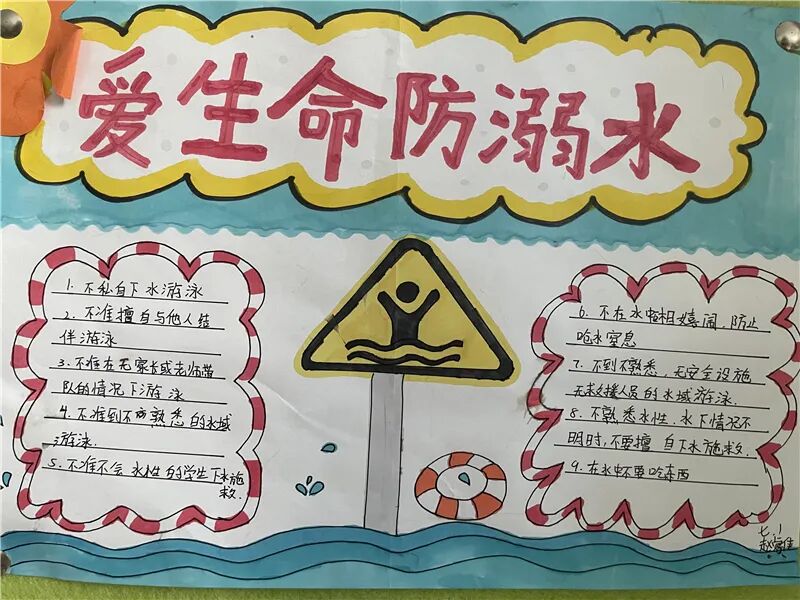 爱生命防溺水
1. 不私自下水游泳
2. 不准擅自与他人结
伴游泳
3. 不准在无家长或老师带
队的情况下游泳
4. 不准到不熟悉的水域
游泳.
5. 不准不会水性的学生下水施
救.
6. 不在水中相嬉闹，防止
呛水窒息
7. 不到不熟悉，无安全设施
无救援人员的水域游泳.
8. 不熟悉水性，水下情况不
明时，不要擅自下水施救.
9. 在水中不要吃东西
七.1
赵